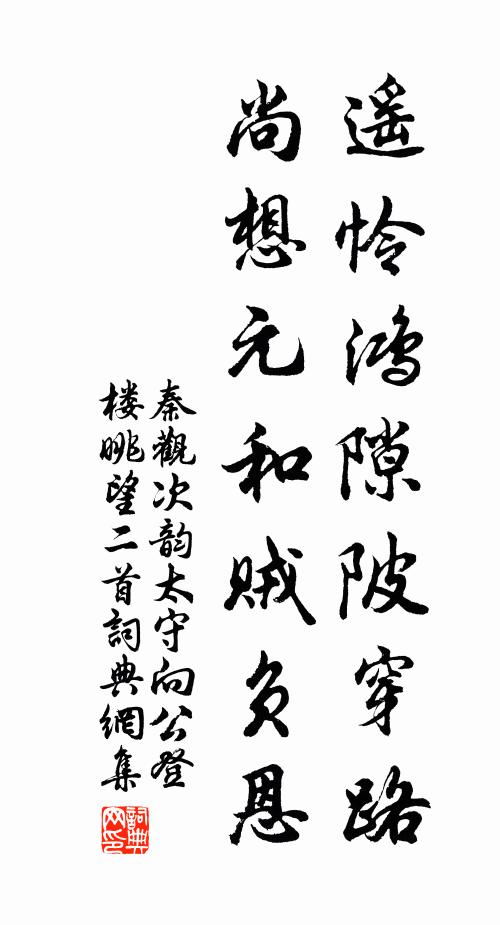 遥怜鸿隙陂穿路
尚想元和贼负恩
秦觀次韵太守向公登
楼眺望二首詞典網集
詞典
网印